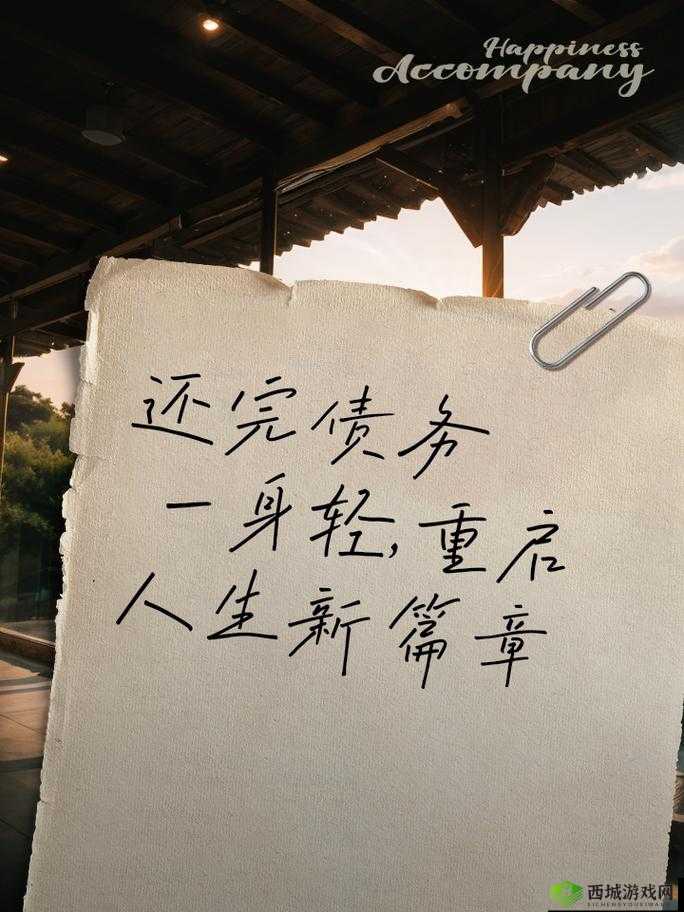 Happiness
Accompany
还完债务
一身轻,重启
人生新篇章
西城游戏网